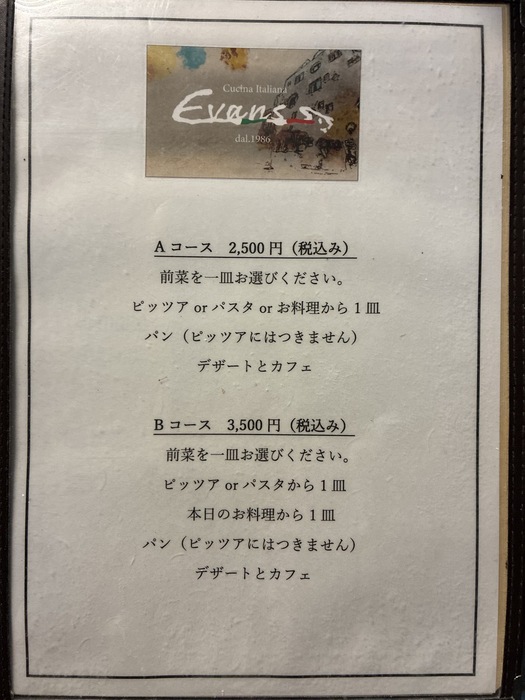 Cucina Italiana
Evans
dal.1986
Aコース　2,500円（税込み）
前菜を一皿お選びください。
ピッツァ or パスタ or お料理から1皿
パン（ピッツァにはつきません）
デザートとカフェ
Bコース　3,500円（税込み）
前菜を一皿お選びください。
ピッツァ or パスタから1皿
本日のお料理から1皿
パン（ピッツァにはつきません）
デザートとカフェ